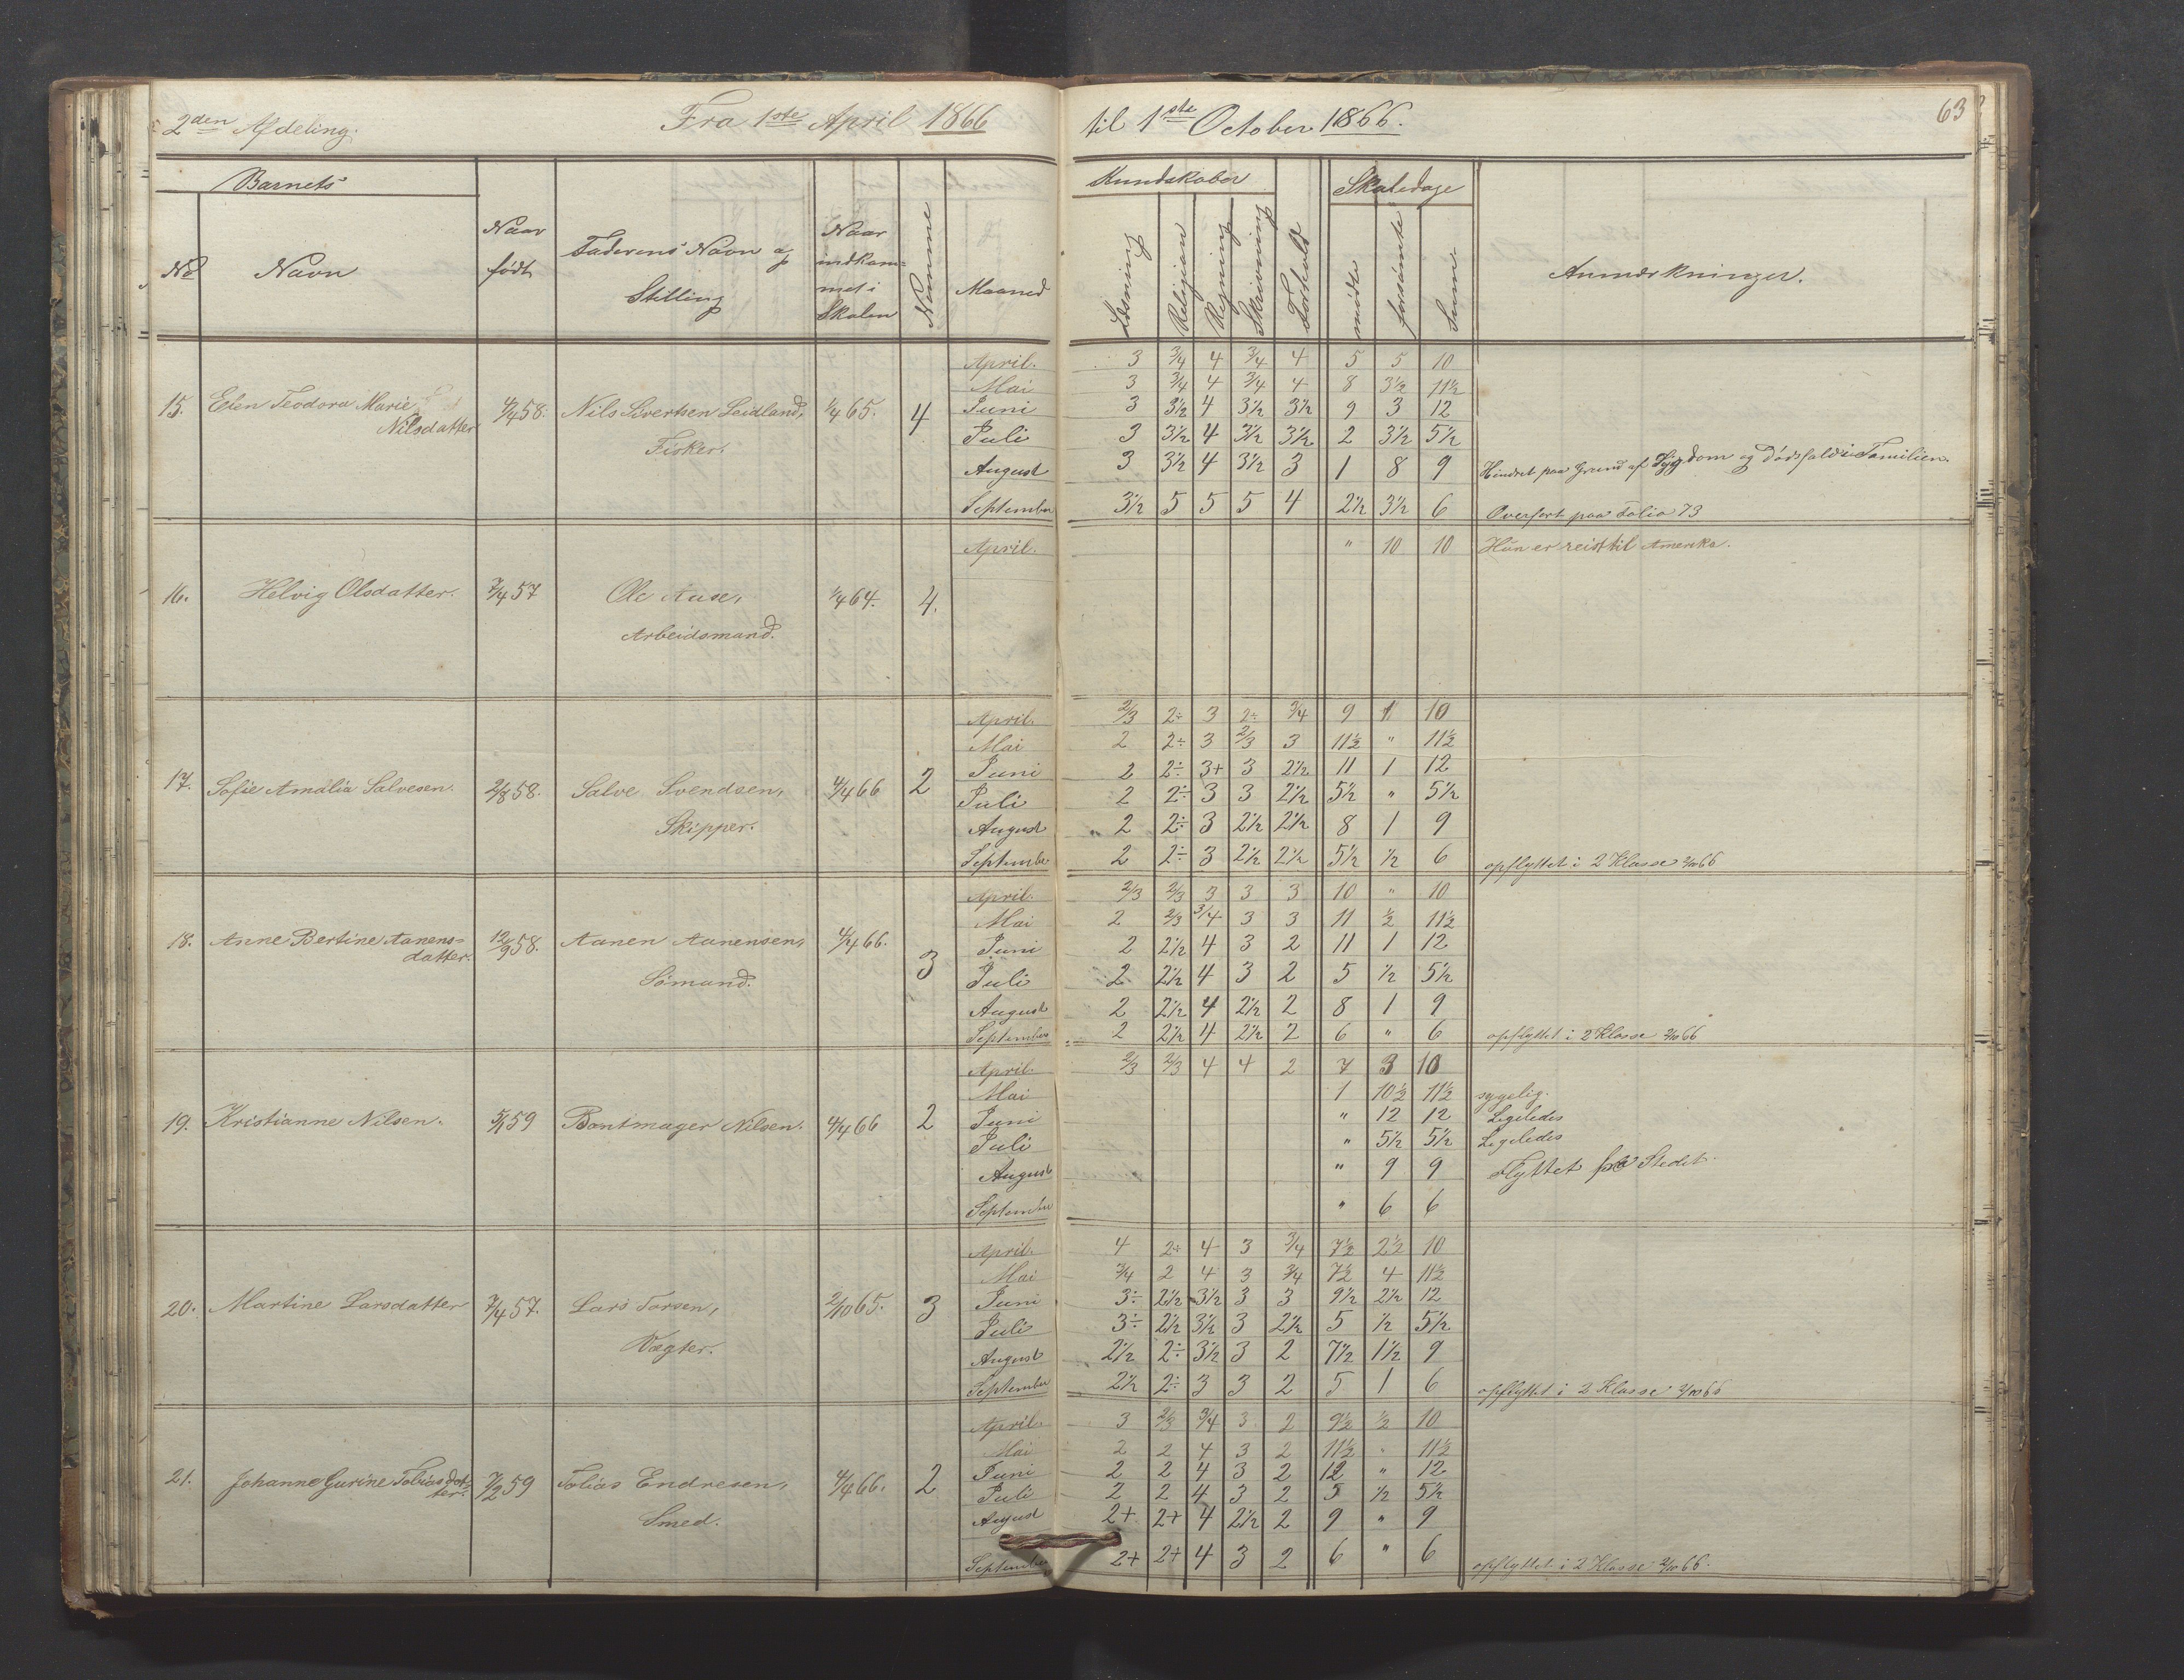 2den Afdeling.
Fra 1ste April 1866
til 1ste October 1866.
63
Barnets
No
Navn
Naar født
Faderens Navn og Stilling
Naar indkommet i Skolen
Nemme
Maaned
Kundskaber
Læsning
Religion
Regning
Skrivning
Forhold
Skoledage
mødte
forsømte
Sum
Anmærkninger.
15. Elen Teodora Marie Nilsdatter 4/4 58. Nils Sivertsen Leidland, Fisker. 1/4 65. 4
April. 3 3/4 4 3/4 4 5 5 10
Mai 3 3/4 4 3/4 4 8 3½ 11½
Juni 3 3½ 4 3½ 3½ 9 3 12
Juli 3 3½ 4 3½ 3½ 2 3½ 5½
August 3 3½ 4 3½ 3 1 8 9 Hindret paa Grund af Sygdom og Dødsfald i Familien.
September 3½ 5 5 5 4 2½ 3½ 6 Overført paa Folio 73
16. Helvig Olsdatter. 7/4 57 Ole Aase, Arbeidsmand. 1/4 64. 4.
April. " 10 10 Hun er reist til Amerika.
17. Sofie Amalia Salvesen. 2/8 58. Salve Svendsen, Skipper. 4/4 66 2
April. 2/3 2÷ 3 2÷ 3/4 9 1 10
Mai 2 2÷ 3 2/3 3 11½ " 11½
Juni 2 2÷ 3+ 3 2½ 11 1 12
Juli 2 2÷ 3 3 2½ 5½ " 5½
August 2 2÷ 3 2½ 2½ 8 1 9
September 2 2÷ 3 2½ 2½ 5½ ½ 6 opflyttet i 2 Klasse 2/10 66
18. Anne Bertine Aanensdatter. 12/9 58. Aanen Aanensen, Sømand. 4/4 66. 3
April. 2/3 2/3 3 3 3 10 " 10
Mai 2 2/3 3/4 3 3 11 ½ 11½
Juni 2 2½ 4 3 2 11 1 12
Juli 2 2½ 4 3 2 5 ½ 5½
August 2 2½ 4 2½ 2 8 1 9
September 2 2½ 4 2½ 2 6 " 6 opflyttet i 2 Klasse 2/10 66
19. Kristianne Nilsen. 5/1 59 Bontmager Nilsen. 4/4 66 2
April. 2/3 2/3 4 4 2 7 3 10
Mai 1 10½ 11½ sygelig.
Juni " 12 12 Ligeledes
Juli " 5½ 5½ Ligeledes
August " 9 9 Flyttet fra Stedet.
September " 6 6
20. Martine Larsdatter 7/4 57. Lars Torsen, Vægter. 2/10 65. 3
April. 4 2÷ 4 3 3/4 7½ 2½ 10
Mai 3/4 2 4 3 3/4 7½ 4 11½
Juni 3÷ 2½ 3½ 3 3 9½ 2½ 12
Juli 3÷ 2½ 3½ 3 2½ 5 ½ 5½
August 2½ 2÷ 3½ 3 2 7½ 1½ 9
September 2½ 2÷ 3 3 2 5 1 6 opflyttet i 2 Klasse 2/10 66
21. Johanne Gurine Tobiasdatter. 7/2 59 Tobias Endresen, Smed. 4/4 66. 2
April. 3 2/3 3/4 3 2 9½ ½ 10
Mai 2 2 4 3 2 11½ " 11½
Juni 2 2 4 3 2 12 " 12
Juli 2 2 4 3 2 5 ½ 5½
August 2+ 2+ 4 2½ 2 9 " 9
September 2+ 2+ 4 3 2 6 " 6 opflyttet i 2 Klasse 2/10 66.